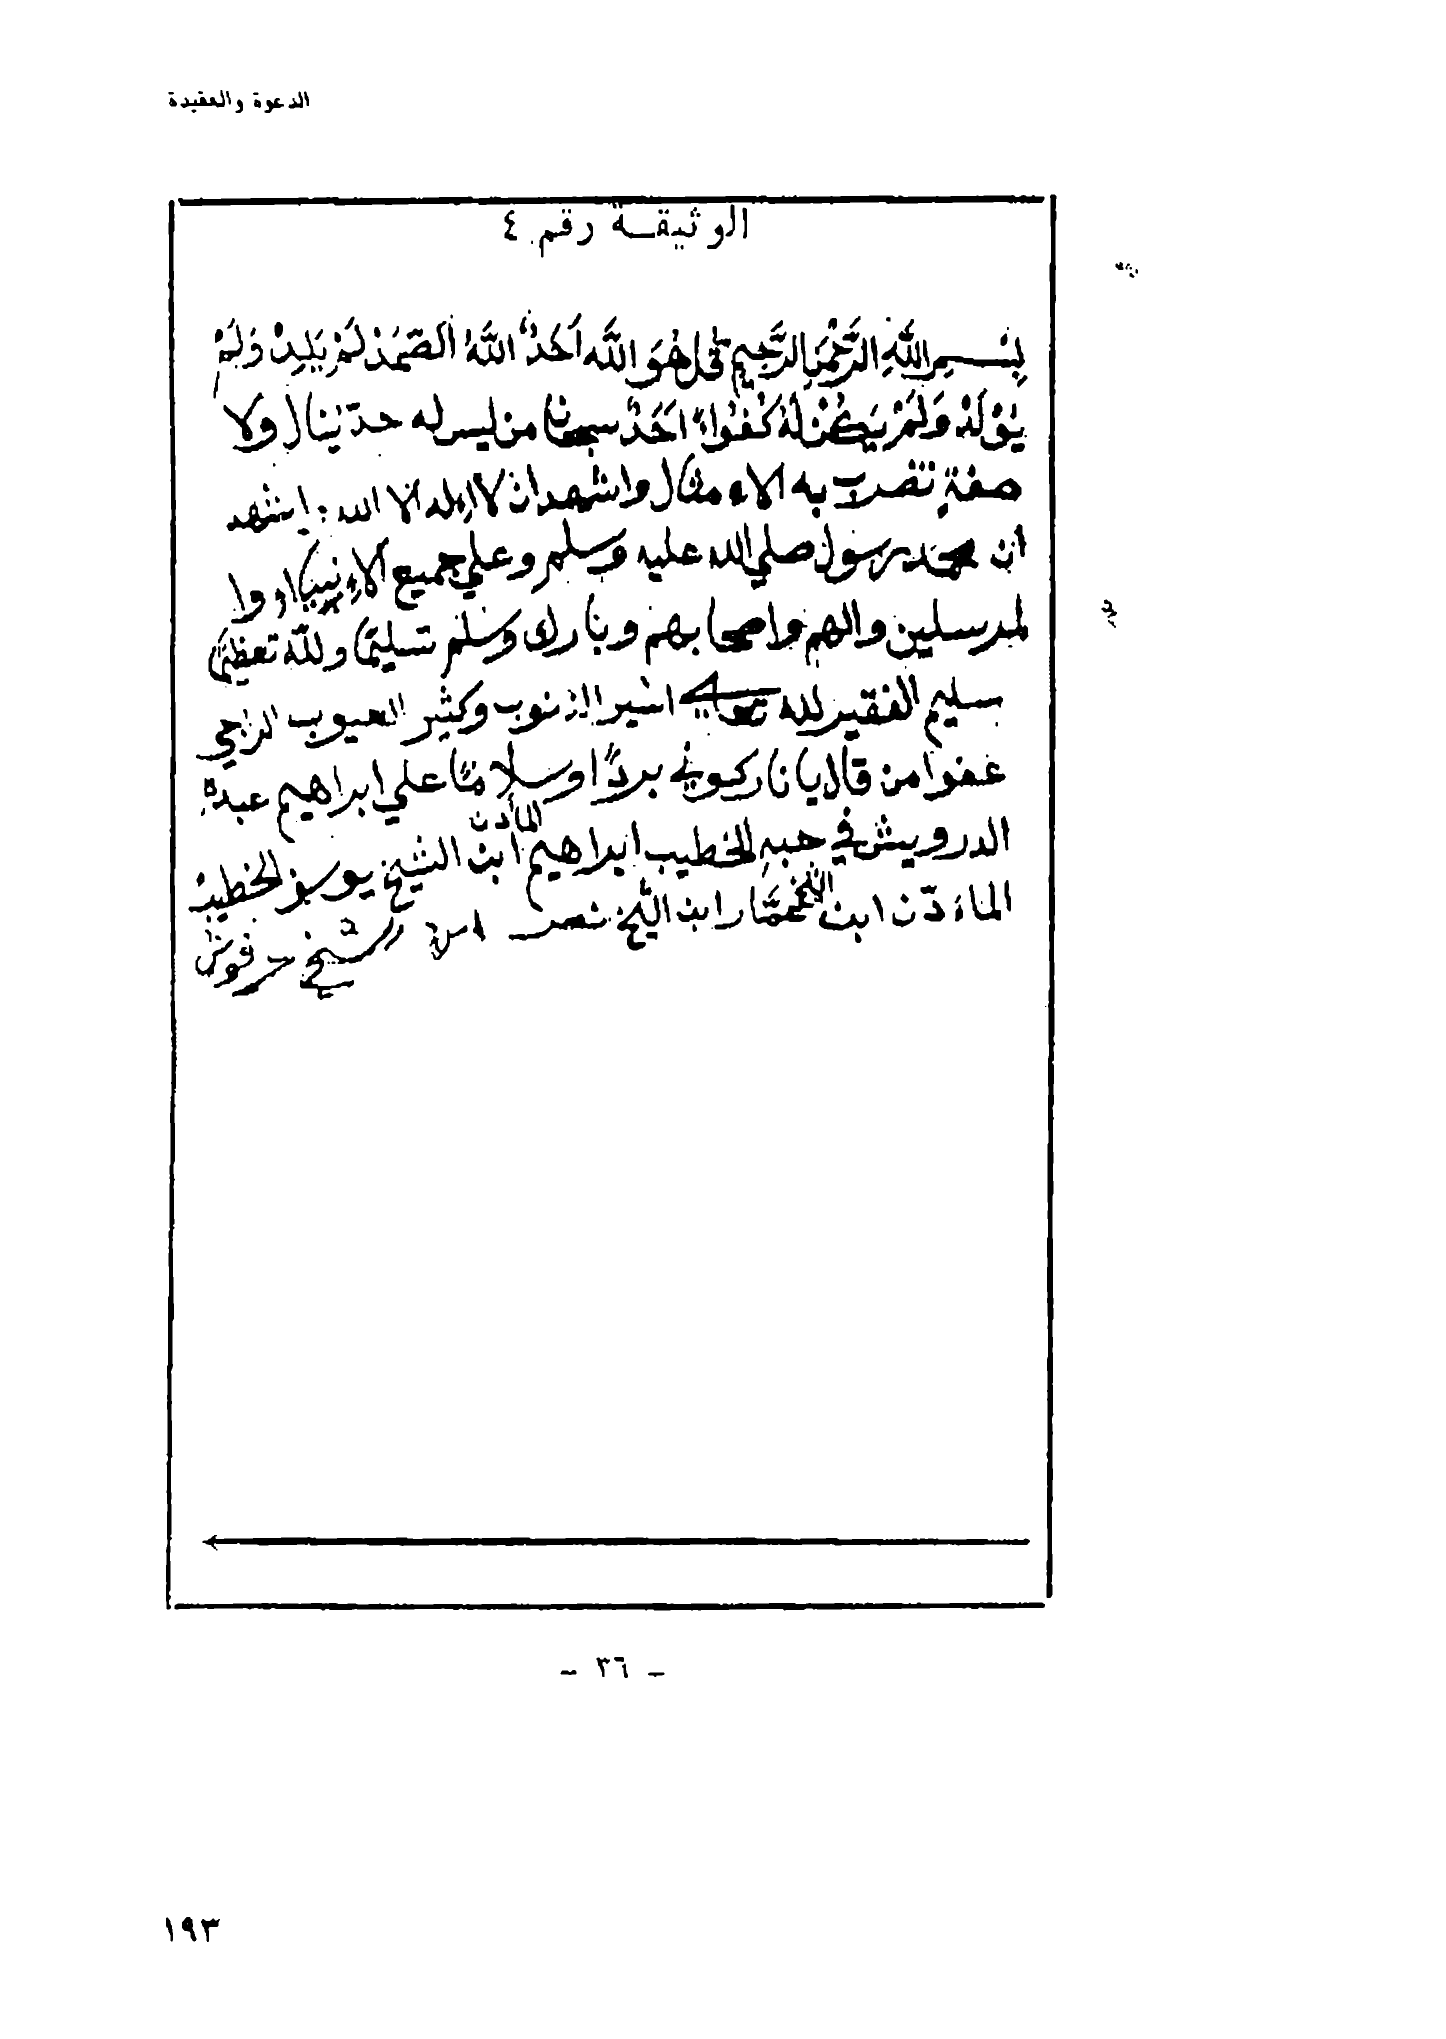 الدعوة والعقيدة
الوثيقة رقم ٤
بِسْمِ اللَّهِ الرَّحْمَنِ الرَّحِيمِ قُل هُوَ اللَّه اَحَدٌ اللَّهُ الصَّمَدْ لَمْ يَلِدْ وَلَمْ
يُوْلَدْ وَلَمْ يَكُنْ لَهُ كُفُواً اَحَدٌ سبحانا من ليس له حدّ يُنال ولا
صفةٍ تضرب به الاءمثال واشهد ان لا اءله الا الله واشهد
ان محمد رسول صلي الله عليه وسلم وعلي جميع الاءنبياء وا
لمرسلين والهم واصحابهم وبارك وسلم تسليمًا وللّه تعظيمًا
بسليم الفقير لله تعالي اسير الذنوب وكثير العيوب الراجي
عفوا من قال يا نار كوني بردًا وسلامًا علي ابراهيم عبده
الدرويش في حبهِ الخطيب ابراهيم المأذن ابن الشيخ يوسف الخطيب
الماءذّن ابن الشيخ عمّار ابن الشيخ نصر ابن الشيخ حرفوش
- ٣٦ -
١٩٣